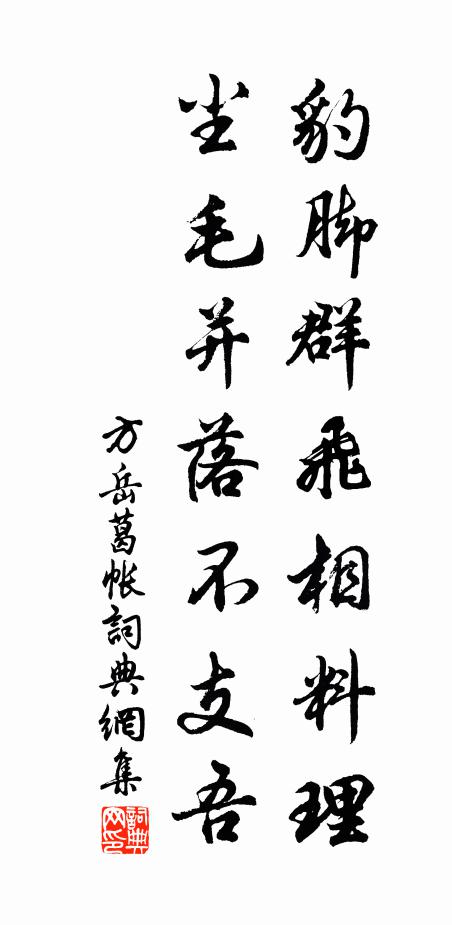 豹脚群飛相料理
坐毛并落不支吾
方岳葛帐詞典網集
詞典网印